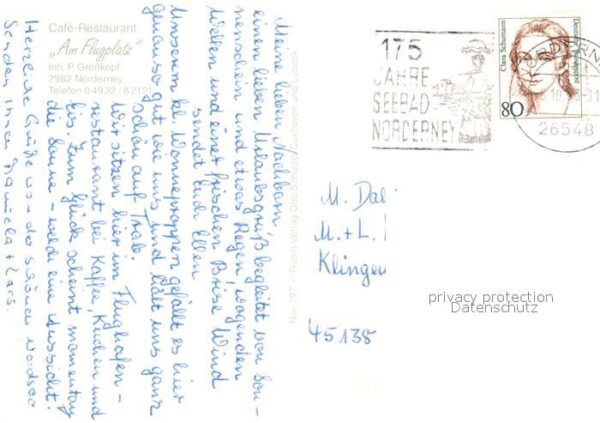 Café-Restaurant
„Am Flugplatz"
Inh. P. Großkopf
2982 Norderney
Telefon 0 49 32 / 8 21 21
Meine lieben Nachbarn,
einen lieben Urlaubsgruß begleitet von Son-
nenschein und etwas Regen, wogenden
Wellen und einer frischen Brise Wind
sendet Euch Ellen
Unserem kl. Wonneproppen gefällt es hier
genauso gut wie uns und hält uns ganz
schön auf Trab.
Wir sitzen hier im Flughafen-
restaurant bei Kaffee, Kuchen und
bis. Zum Glück scheint momentan
die Sonne - welch eine Aussicht!
Herzliche Grüße von der schönen Nordsee
senden Ihnen Daniela + Lars.
175
JAHRE
SEEBAD
NORDERNEY
Clara Schumann
Deutsche Bundespost
80
NORDERN
26548
M. Dal
M. + L.
Klingen
45138
privacy protection
Datenschutz